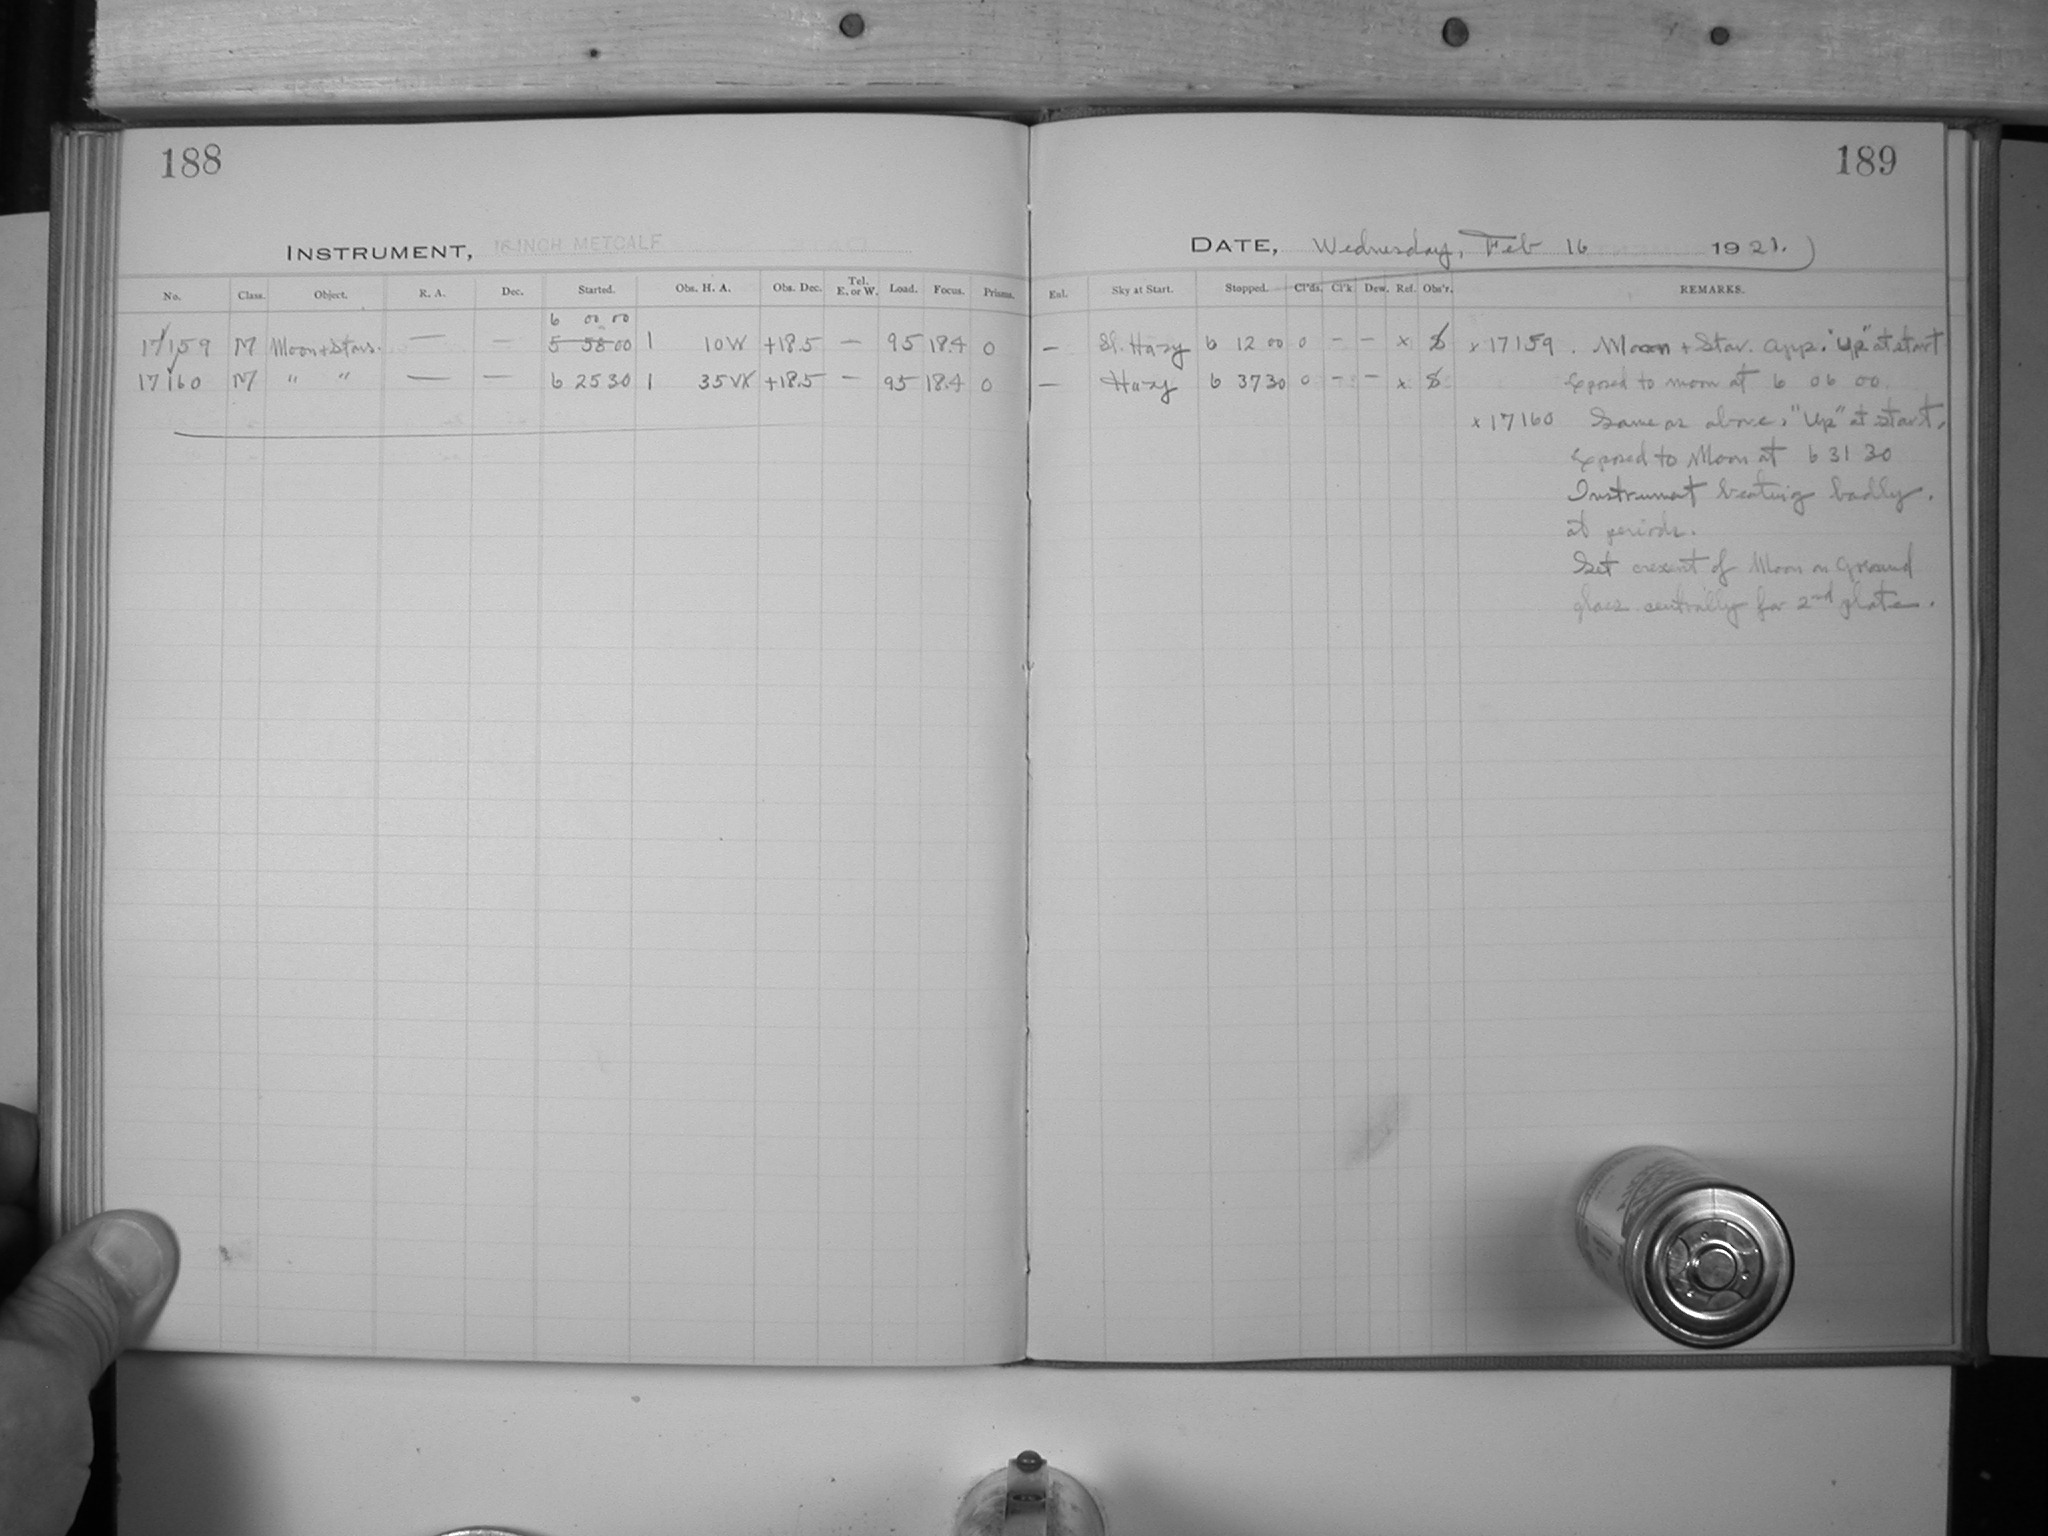 188
189
INSTRUMENT, 16-INCH METCALF
DATE, Wednesday, Feb 16 1921.
No. Class. Object. R. A. Dec. Started. Obs. H. A. Obs. Dec. Tel. E. or W. Load. Focus. Prisms. Enl. Sky at Start. Stopped. Cl'ds. Cl'k Dew. Ref. Obs'r. REMARKS.
6 00 00
17159 M Moon + Stars. — — 5 58 00 1 10W +18.5 — 95 18.4 0 — Sl. Hazy 6 12 00 0 - - x x 17159. Moon + Star. app. "Up" at start
Exposed to moon at 6 06 00
17160 M " " — — 6 25 30 1 35W +18.5 — 95 18.4 0 — Hazy 6 37 30 0 - - x
x 17160 Same as above, "Up" at start.
Exposed to Moon at 6 31 30
Instrument beating badly.
at periods.
Set crescent of Moon on Ground
glass centrally for 2nd plate.